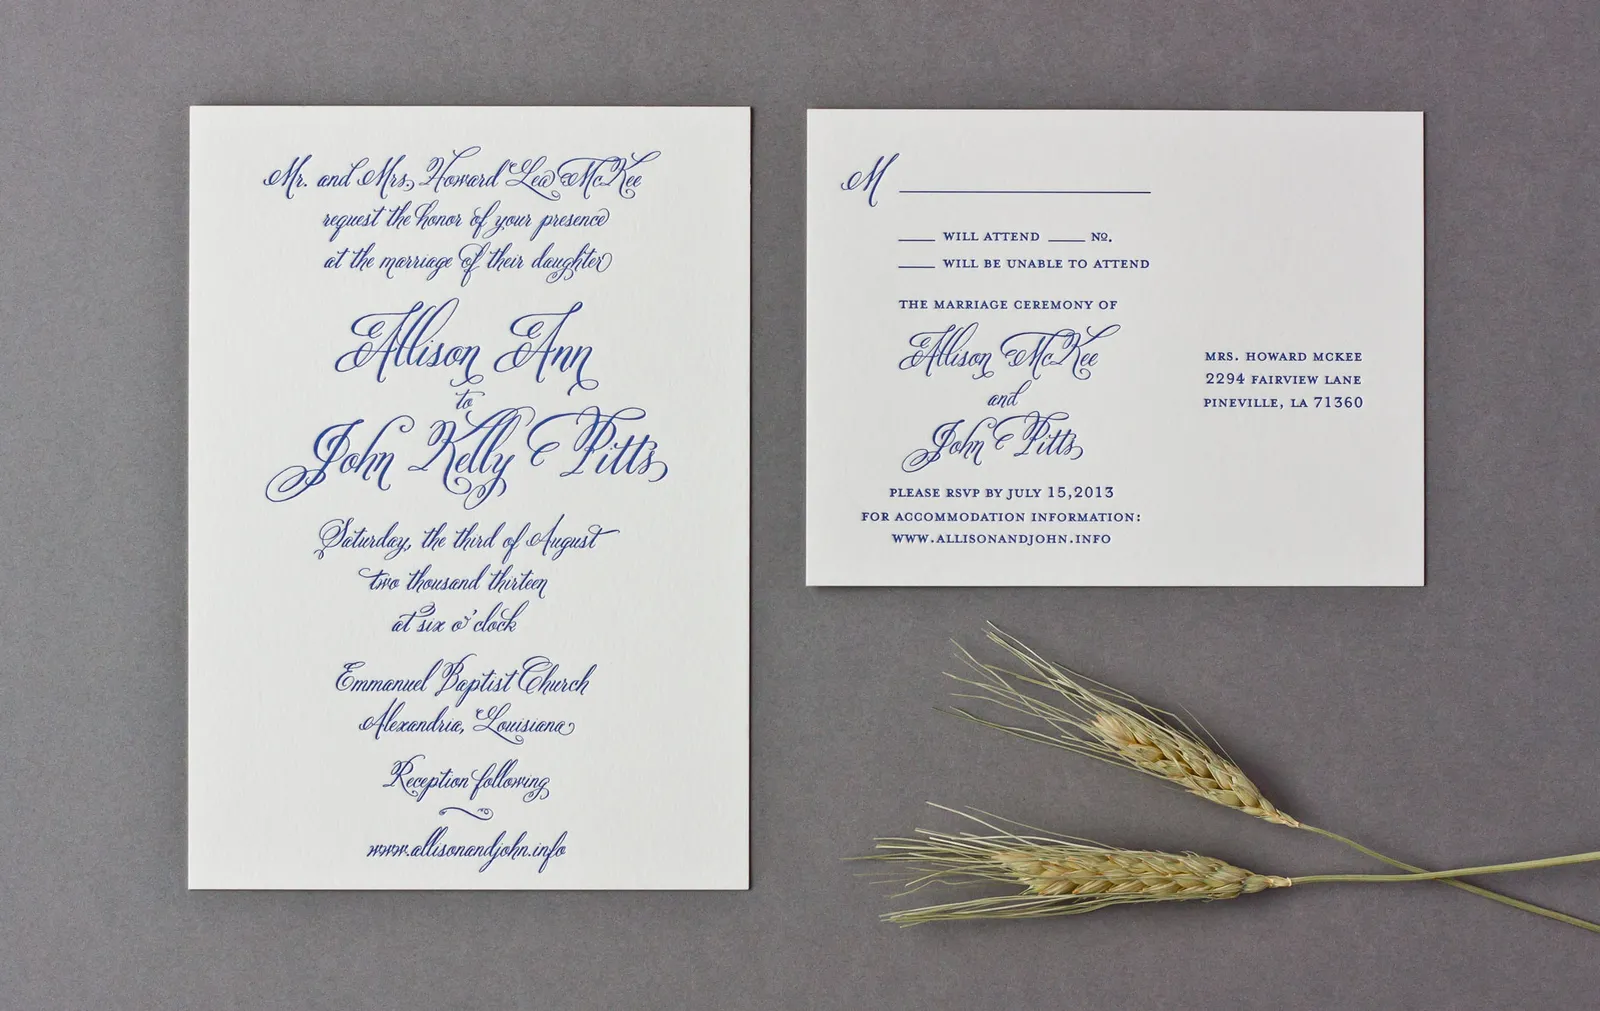 Mr. and Mrs. Howard Lea McKee
request the honor of your presence
at the marriage of their daughter
Allison Ann
to
John Kelly Pitts
Saturday, the third of August
two thousand thirteen
at six o'clock
Emmanuel Baptist Church
Alexandria, Louisiana
Reception following
www.allisonandjohn.info
M
WILL ATTEND No.
WILL BE UNABLE TO ATTEND
THE MARRIAGE CEREMONY OF
Allison McKee
and
John Pitts
PLEASE RSVP BY JULY 15,2013
FOR ACCOMMODATION INFORMATION:
WWW.ALLISONANDJOHN.INFO
MRS. HOWARD MCKEE
2294 FAIRVIEW LANE
PINEVILLE, LA 71360